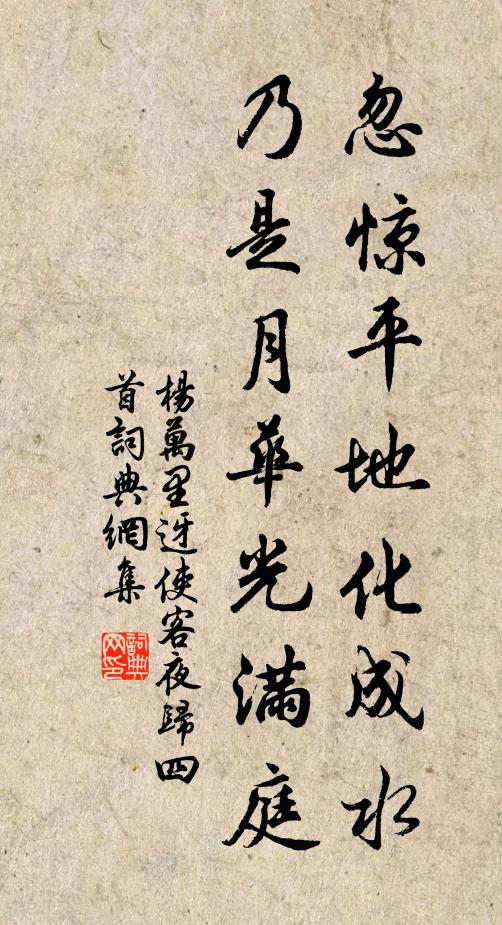 忽惊平地化成水
乃是月華光满庭
楊萬里迓使客夜歸四
首詞典網集
詞典
网印